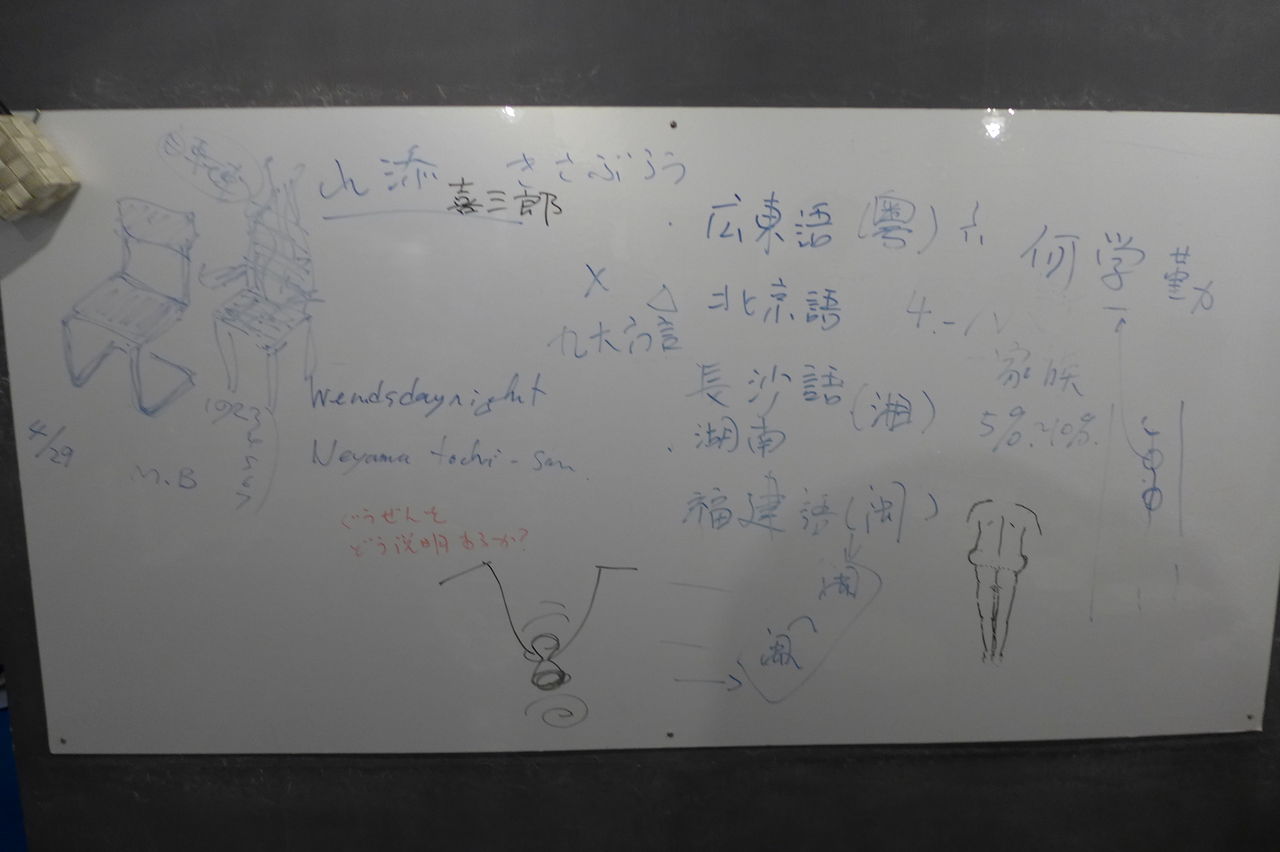 山添 きさぶろう
喜三郎
広東語(粤)
何学勤
北京語
× △
九大方言
長沙語(湘)
湖南
家族
5%.20%.
Wendsdaynight
4/29
1923
M.B
Neyama tochi-san
福建語(闽)
ぐうぜんを
どう説明するか?